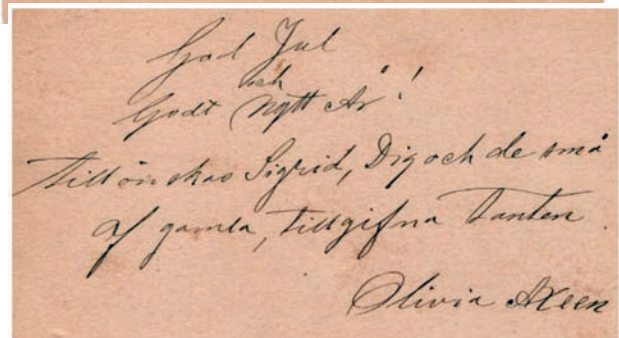 God Jul
och
Godt Nytt År!
tillönskas Sigrid, Dig och de små
af gamla, tillgifna Tanten
Olivia Axeen